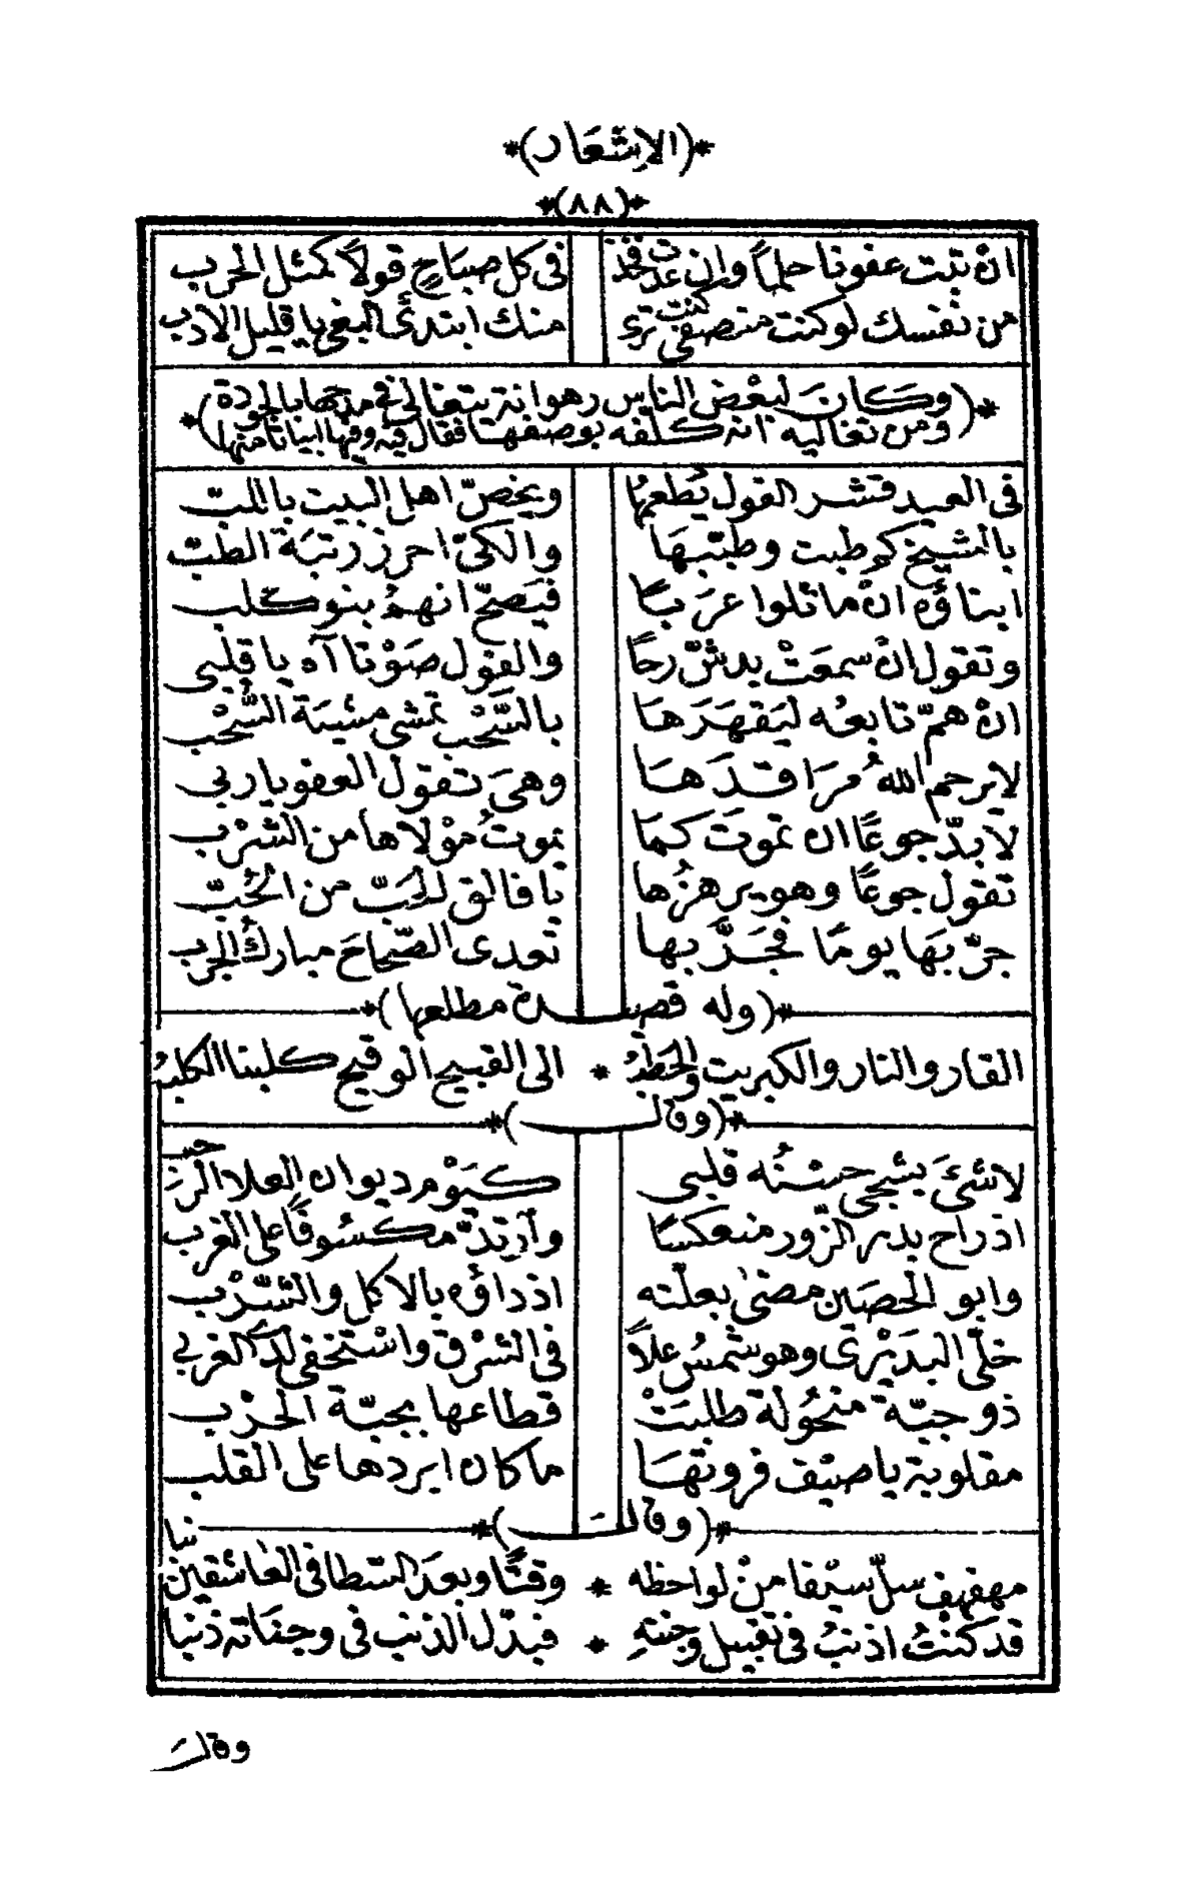 *(الاشعار)*
*(٨٨)*
ان تبت عفونا حلماً وان عدت فخذ في كل صباحٍ قولاً كمثل الحرب
من نفسك لو كنت منصفي كنت ترى منك ابتدئ البغي يا قليل الادب
*(وكان لبعض الناس رهوانة يتغالى في مدحها بالجودة
ومن تغاليه انه كلفه بوصفها فقال فيه وفيها ابياتا منها)*
في العيد قشر الفول يُطعمها ويخصّ اهل البيت باللبّ
بالشيخ كم طبت وطبّبها والكيّ احرز رتبة الطبّ
ابناؤه انْ ماثلوا عرَبًا فيَصحّ انهمُ بنو كلب
وتقول انْ سمعَتْ بدشّ رحاً والفول صَوْتا آه يا قلبي
انْ همّ تابعُه ليَقهَرَهَا بالسَّحْب تمشي مشيَة السُّحْب
لا يرحم اللهُ مرَا قدَهَا وهيَ تقول العفو يا ربي
لا بدّ جوعًا ان تموتَ كمَا يموتُ موْلاها من الشرْب
تقول جوعًا وهو يرهزُها يا فالق للحَبّ من الحُبّ
جرّبهَا يومًا فجَرَّبها تعدى الصّحاحَ مباركُ الجرب
*(وله قصيدة مطلعها)*
القار والنار والكبريت والحَطَبُ * الى القبيح الوقيح كلبنا الكلبُ
*(وقال)*
لا شئَ يشجي حسْنُه قلبي كيَوْم ديوان العلا الرحب
اذ راح بدر الزّور منعكسًا وارتدّ مكسوفًا على الغرب
وابو الحصَين مضىٰ بعلّته اذ داؤه بالاكل والشّرْب
خلّى البدَيْرى وهو شمسُ علاً في الشرق واستخفى لدى الغرب
ذو جبّة منحُولة طلبَتْ قطاعها بجبّة الحرْب
مقلوبة يا ضيْف فروتهَا ما كان ابردها على القلب
*(وقال)*
مهفهف سلّ سيْفا منْ لواحظه * وقتًا وبعدَ السّطا في العاشقين نبا
قد كنْتُ اذنبُ في تقبيل وجنتهِ * فبدّل الذنب في وجناته ذنبا
وقال